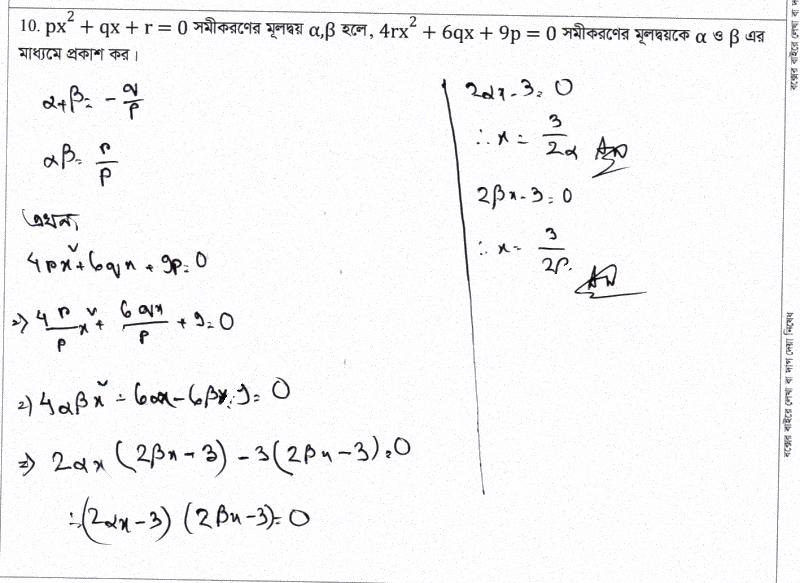 10. px² + qx + r = 0 সমীকরণের মূলদ্বয় α,β হলে, 4rx² + 6qx + 9p = 0 সমীকরণের মূলদ্বয়কে α ও β এর
মাধ্যমে প্রকাশ কর।
α+β = - q/p
αβ = r/p
এখন,
4px² + 6qx + 9p = 0
⇒ 4 r/p x² + 6qx/p + 9 = 0
⇒ 4αβx² - 6αx - 6βx + 9 = 0
⇒ 2αx (2βx - 3) - 3(2βx - 3) = 0
∴ (2αx - 3) (2βx - 3) = 0
2αx - 3 = 0
∴ x = 3/2α Ans
2βx - 3 = 0
∴ x = 3/2β. Ans
বক্সের বাইরে লেখা বা দাগ দেয়া নিষেধ
বক্সের বাইরে লেখা বা দা